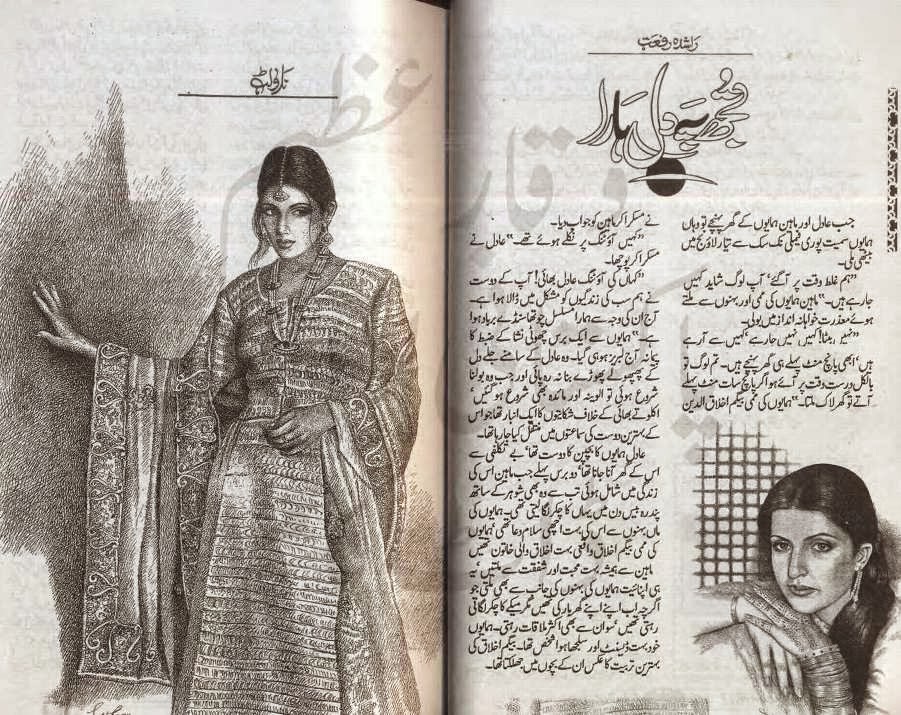 ناولٹ
راشدہ رفعت
تجھ پہ دل ہارا
جب عادل اور ماہین ہمایوں کے گھر پہنچے تو وہاں
ہمایوں سمیت پوری فیملی تک سک سے تیار لاؤنج میں
بیٹھی ملی۔
"ہم غلط وقت پر آگئے' آپ لوگ شاید کہیں
جارہے ہیں۔" ماہین ہمایوں کی ممی اور بہنوں سے ملتے
ہوئے معذرت خواہانہ انداز میں بولی۔
"نہیں بیٹا! کہیں نہیں جارہے' کہیں سے آرہے
ہیں' ابھی پانچ منٹ پہلے ہی گھر پہنچے ہیں۔ تم لوگ تو
بالکل درست وقت پر آئے ہو اگر پانچ سات منٹ پہلے
آتے تو گھر لاک ملتا۔" ہمایوں کی ممی بیگم اخلاق الدین
نے مسکرا کر ماہین کو جواب دیا۔
"کہیں آؤٹنگ پر نکلے ہوئے تھے۔" عادل نے
مسکرا کر پوچھا۔
"کہاں کی آؤٹنگ عادل بھائی! آپ کے دوست
نے ہم سب کی زندگیوں کو مشکل میں ڈالا ہوا ہے۔
آج ان کی وجہ سے ہمارا مسلسل چوتھا سنڈے برباد ہوا
ہے۔" ہمایوں سے ایک برس چھوٹی نشا کے ضبط کا
پیمانہ آج لبریز ہو ہی گیا۔ وہ عادل کے سامنے جلے دل
کے پھپھولے پھوڑے بنا نہ رہ پائی اور جب وہ بولنا
شروع ہوئی تو الوینہ اور مائدہ بھی شروع ہو گئیں'
اکلوتے بھائی کے خلاف شکایتوں کا ایک انبار تھا جو اس
کے بہترین دوست کی سماعتوں میں منتقل کیا جارہا تھا۔
عادل ہمایوں کا بچپن کا دوست تھا' بے تکلفی سے
اس کے گھر آنا جانا تھا' دو برس پہلے جب ماہین اس کی
زندگی میں شامل ہوئی تب سے وہ بھی شوہر کے ساتھ
پندرہ بیس دن میں یہاں کا چکر لگا لیتی تھی۔ ہمایوں کی
ماں بہنوں سے اس کی بہت اچھی سلام دعا تھی' ہمایوں
کی ممی بیگم اخلاق واقعی بہت اخلاق والی خاتون تھیں
ماہین سے ہمیشہ بہت محبت اور شفقت سے ملتیں' یہ
ہی اپنائیت ہمایوں کی بہنوں کی جانب سے بھی ملتی جو
اگرچہ اب اپنے اپنے گھربار کی تھیں مگر میکے کا چکر لگاتی
رہتی تھیں' سو ان سے بھی اکثر ملاقات رہتی۔ ہمایوں
خود بہت ڈیسنٹ اور سلجھا ہوا شخص تھا۔ بیگم اخلاق کی
بہترین تربیت کا عکس ان کے بچوں میں جھلکتا تھا۔
وقار عظیم